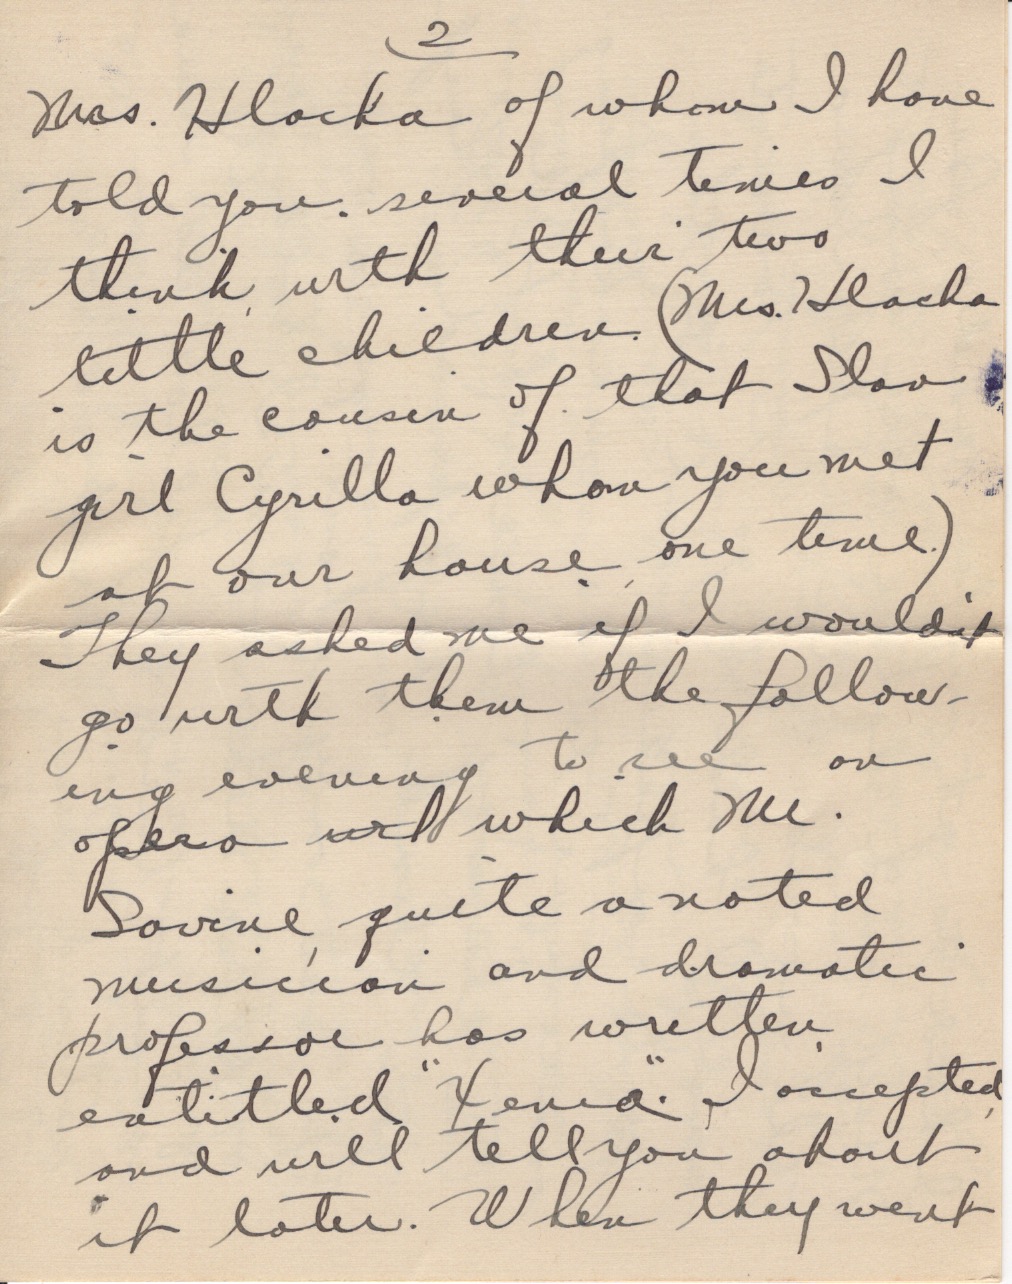 2
Mrs. Hlacka of whom I have
told you several times I
think, with their two
little children. (Mrs. Hlacka
is the cousin of that Slav
girl Cyrilla whom you met
at our house one time.)
They asked me if I wouldn't
go with them the follow-
ing evening to see an
opera which Mr.
Savine, quite a noted
musician and dramatic
professor has written
entitled "Xenia". I accepted,
and will tell you about
it later. When they went